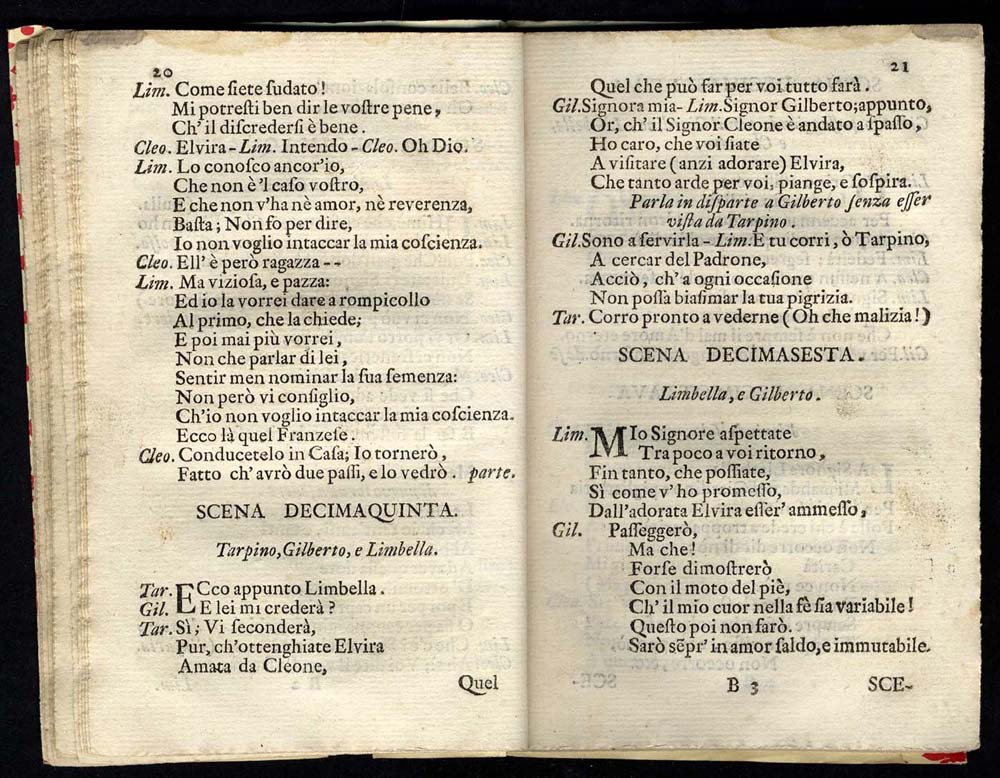 20
Lim. Come ſiete ſudato!
Mi potreſti ben dir le voſtre pene,
Ch' il diſcrederſi è bene.
Cleo. Elvira - Lim. Intendo - Cleo. Oh Dio.
Lim. Lo conoſco ancor'io,
Che non è 'l caſo voſtro,
E che non v'ha nè amor, nè reverenza,
Baſta; Non fo per dire,
Io non voglio intaccar la mia coſcienza.
Cleo. Ell' è però ragazza --
Lim. Ma vizioſa, e pazza:
Ed io la vorrei dare a rompicollo
Al primo, che la chiede;
E poi mai più vorrei,
Non che parlar di lei,
Sentir men nominar la ſua ſemenza:
Non però vi conſiglio,
Ch'io non voglio intaccar la mia coſcienza.
Ecco là quel Franzeſe.
Cleo. Conducetelo in Caſa; Io tornerò,
Fatto ch' avrò due paſſi, e lo vedrò. parte.
SCENA DECIMAQUINTA.
Tarpino, Gilberto, e Limbella.
Tar. ECco appunto Limbella.
Gil. E lei mi crederà?
Tar. Sì; Vi ſeconderà,
Pur, ch'ottenghiate Elvira
Amata da Cleone,
Quel
21
Quel che può far per voi tutto farà.
Gil. Signora mia- Lim. Signor Gilberto; appunto,
Or, ch' il Signor Cleone è andato a ſpaſſo,
Ho caro, che voi ſiate
A viſitare (anzi adorare) Elvira,
Che tanto arde per voi, piange, e ſoſpira.
Parla in diſparte a Gilberto ſenza eſſer
viſta da Tarpino.
Gil. Sono a ſervirla - Lim. E tu corri, ò Tarpino,
A cercar del Padrone,
Acciò, ch' a ogni occaſione
Non poſſa biaſimar la tua pigrizia.
Tar. Corro pronto a vederne (Oh che malizia!)
SCENA DECIMASESTA.
Limbella, e Gilberto.
Lim. MIo Signore aſpettate
Tra poco a voi ritorno,
Fin tanto, che poſſiate,
Sì come v' ho promeſſo,
Dall'adorata Elvira eſſer' ammeſſo,
Gil. Paſſeggerò,
Ma che!
Forſe dimoſtrerò
Con il moto del piè,
Ch' il mio cuor nella fè ſia variabile!
Queſto poi non farò.
Sarò sẽpr' in amor ſaldo, e immutabile.
B 3
SCE-